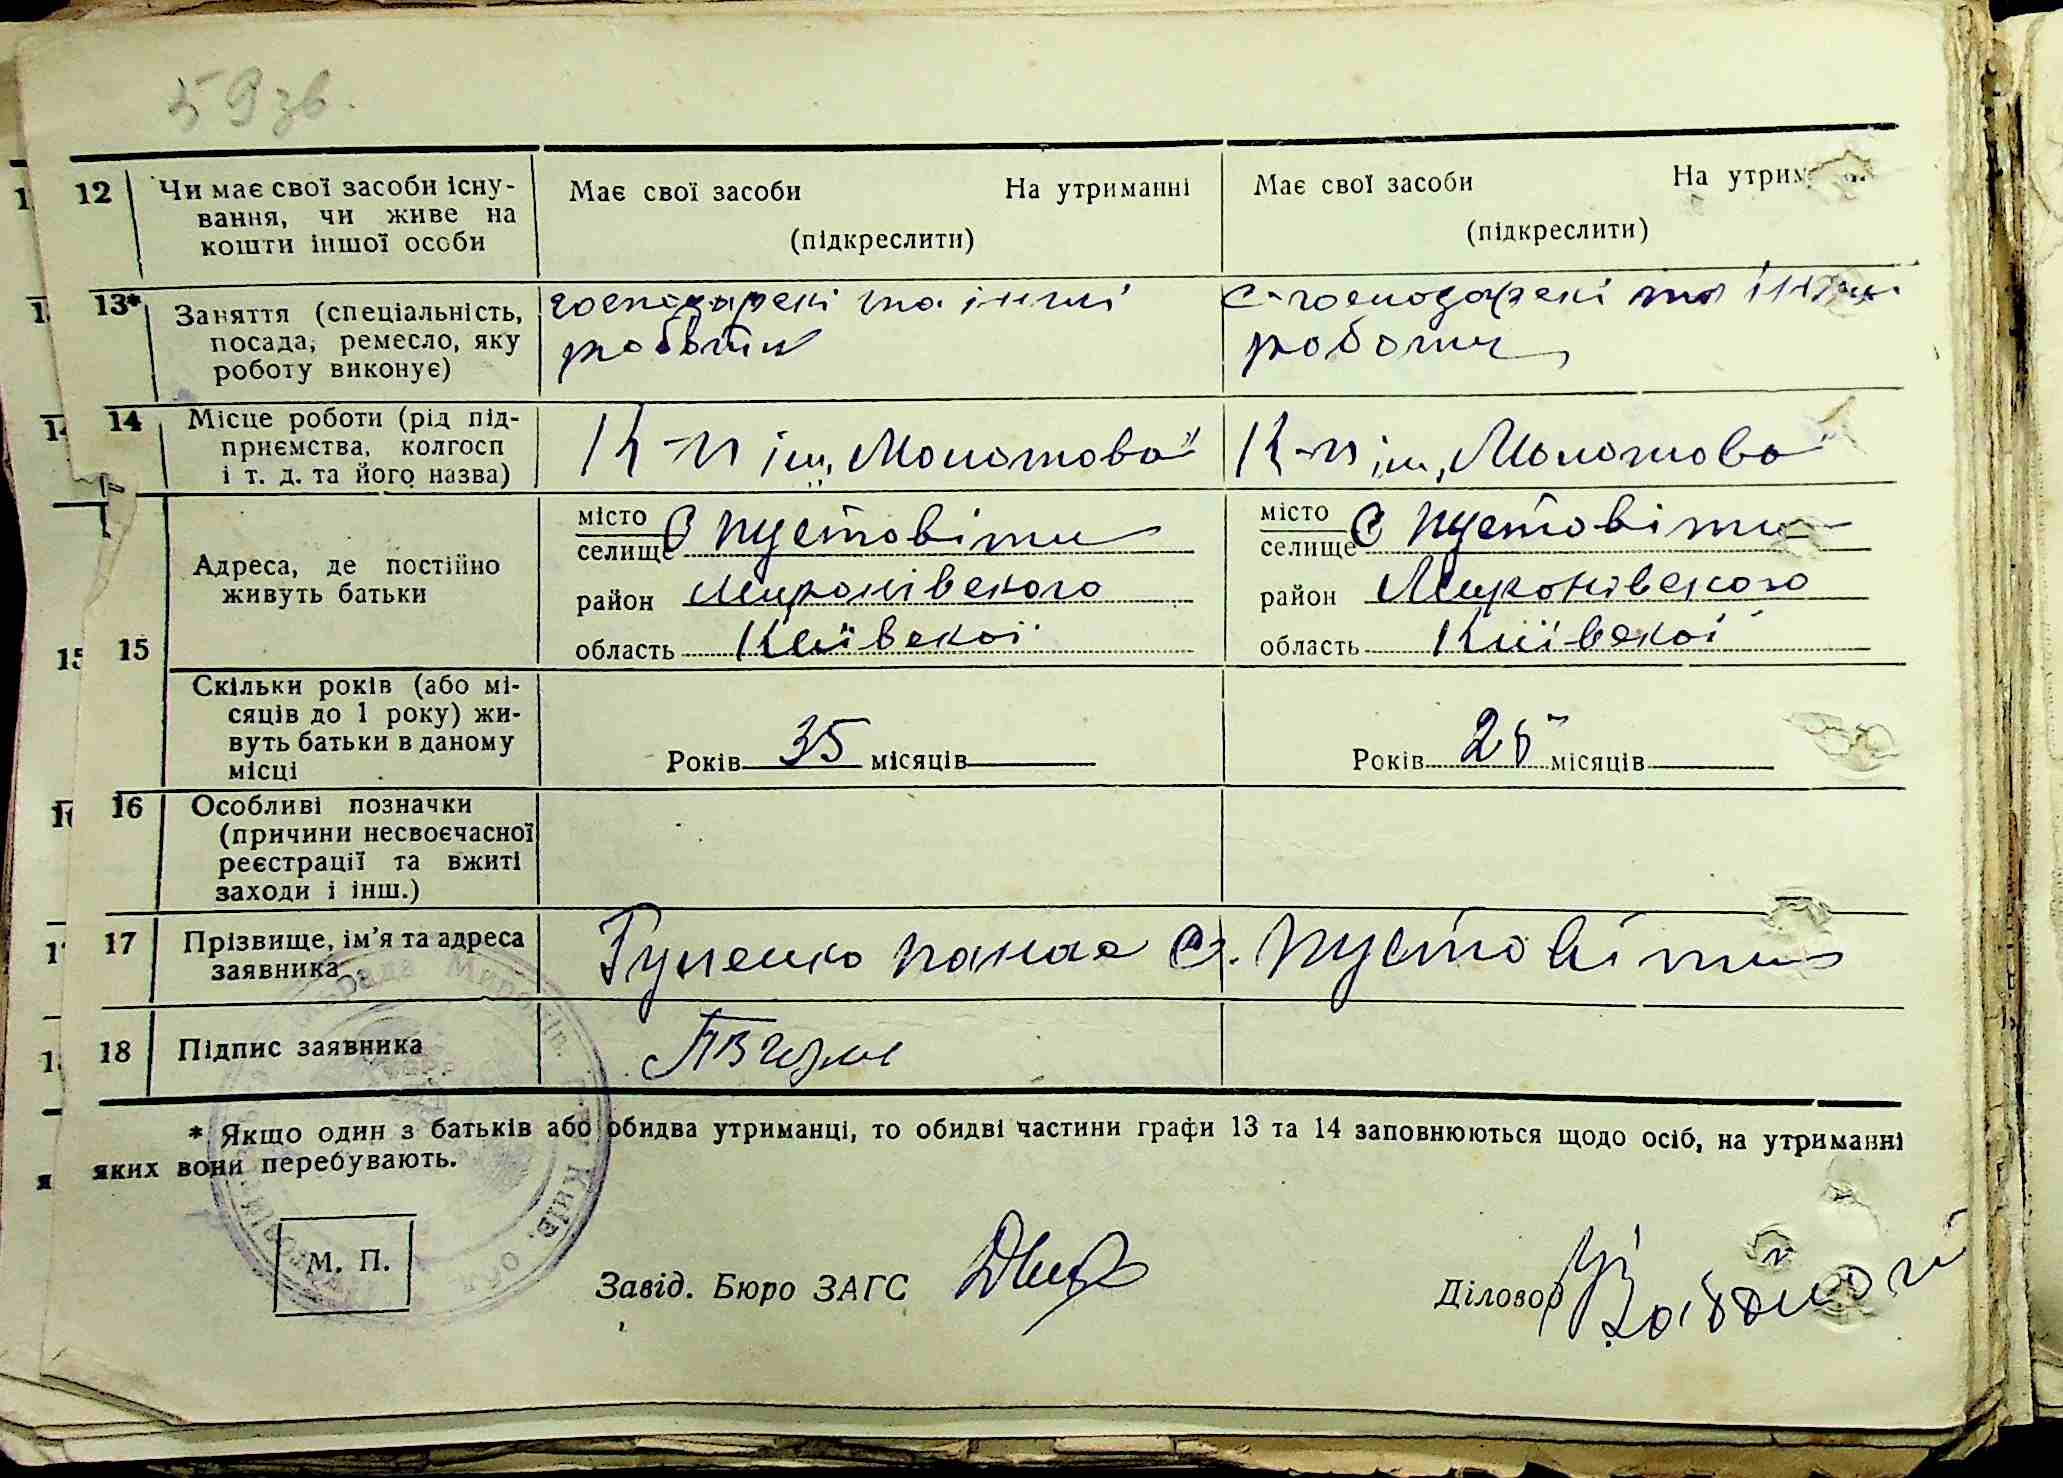 59 зв.
12 Чи має свої засоби існу-
вання, чи живе на
кошти іншої особи
Має свої засоби На утриманні
(підкреслити)
Має свої засоби На утрим
(підкреслити)
13* Заняття (спеціальність,
посада, ремесло, яку
роботу виконує)
господарскі та інші
роботи
с-господарскі та інші
роботи
14 Місце роботи (рід під-
приємства, колгосп
і т. д. та його назва)
К-п ім. „Молотова"
К-п ім. „Молотова"
15 Адреса, де постійно
живуть батьки
місто
селище с Пустовіти
район Миронівского
область Київскої
місто
селище с Пустовіти
район Миронівского
область Київскої
Скільки років (або мі-
сяців до 1 року) жи-
вуть батьки в даному
місці
Років 35 місяців
Років 25 місяців
16 Особливі позначки
(причини несвоєчасної
реєстрації та вжиті
заходи і інш.)
17 Прізвище, ім'я та адреса
заявника
Панас с. Пустовіти
18 Підпис заявника
* Якщо один з батьків або обидва утриманці, то обидві частини графи 13 та 14 заповнюються щодо осіб, на утриманні
яких вони перебувають.
М. П.
Завід. Бюро ЗАГС
Діловод